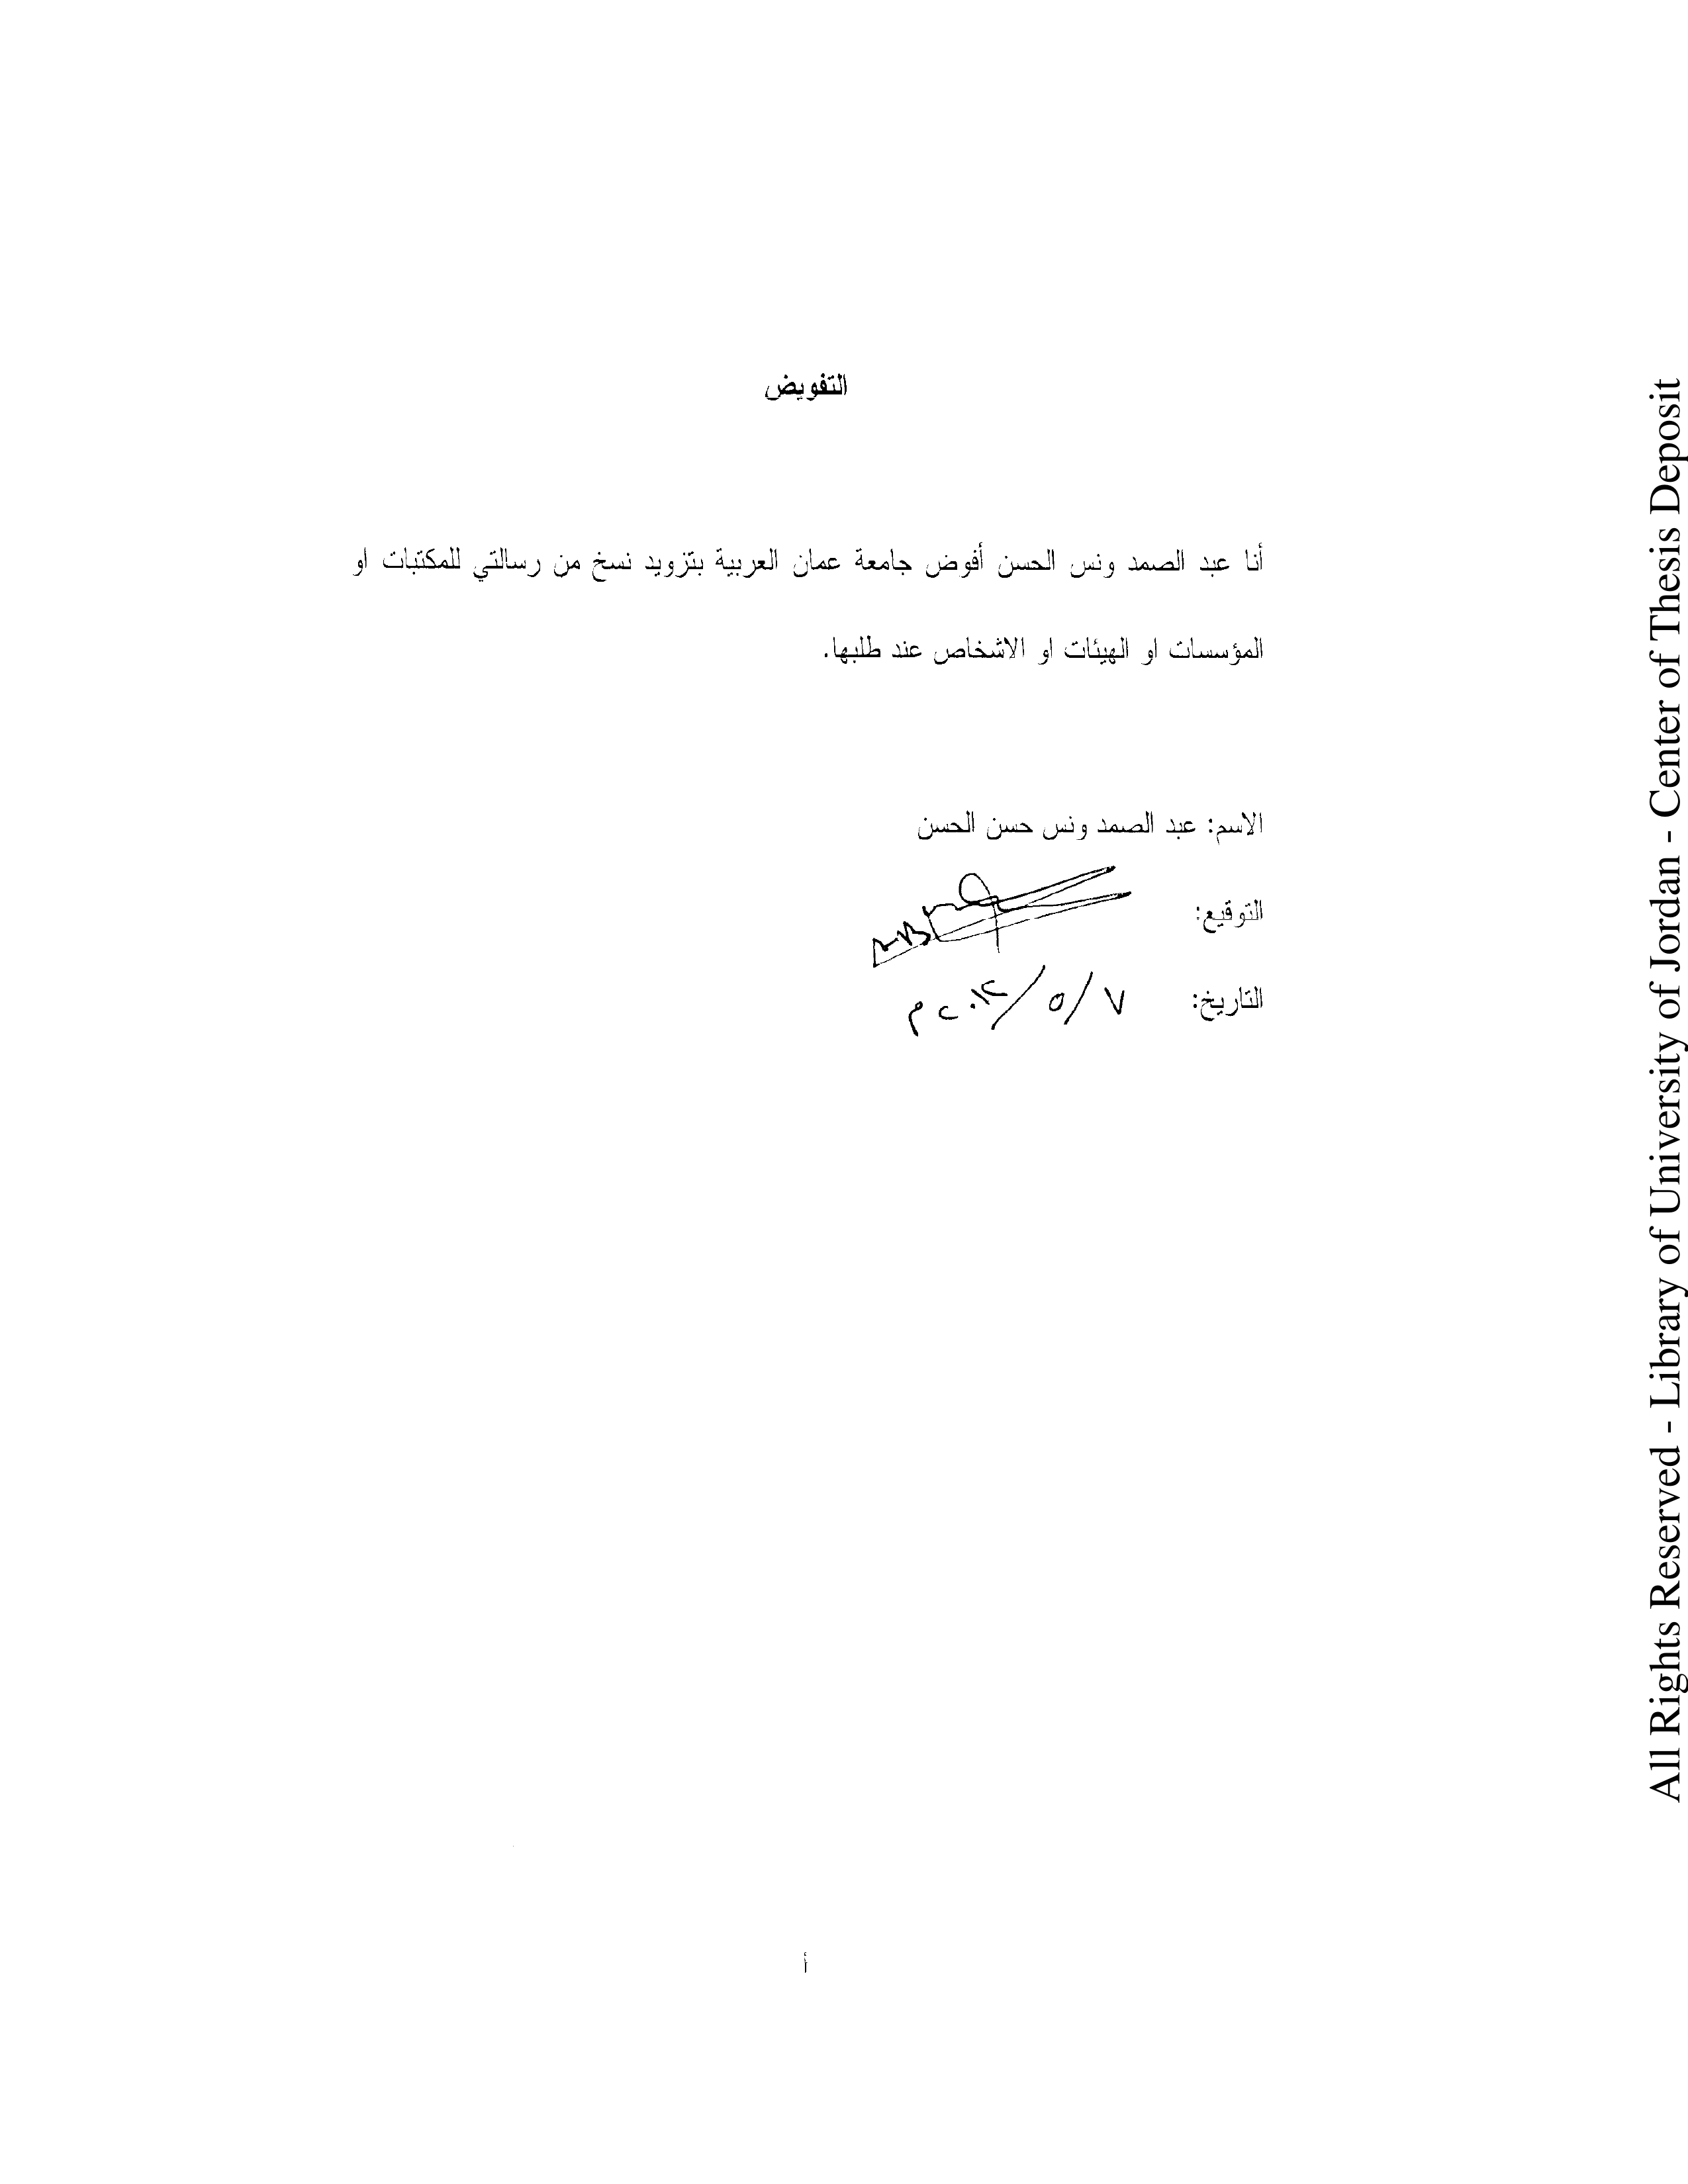 التفويض
أنا عبد الصمد ونس الحسن أفوض جامعة عمان العربية بتزويد نسخ من رسالتي للمكتبات او
المؤسسات او الهيئات او الاشخاص عند طلبها.
الاسم: عبد الصمد ونس حسن الحسن
التوقيع:
التاريخ: ٧/ ٥/ ٢٠١٢ م
أ
All Rights Reserved - Library of University of Jordan - Center of Thesis Deposit